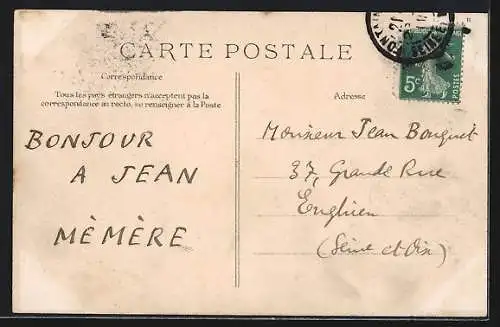 CARTE POSTALE
Correspondance
Tous les pays étrangers n'acceptent pas la
correspondance au recto, se renseigner à la Poste
BONJOUR
A JEAN
MÈMÈRE
Adresse
Monsieur Jean Bouquet
37, Grande Rue
Enghien
(Seine et Oise)
5c
POSTES